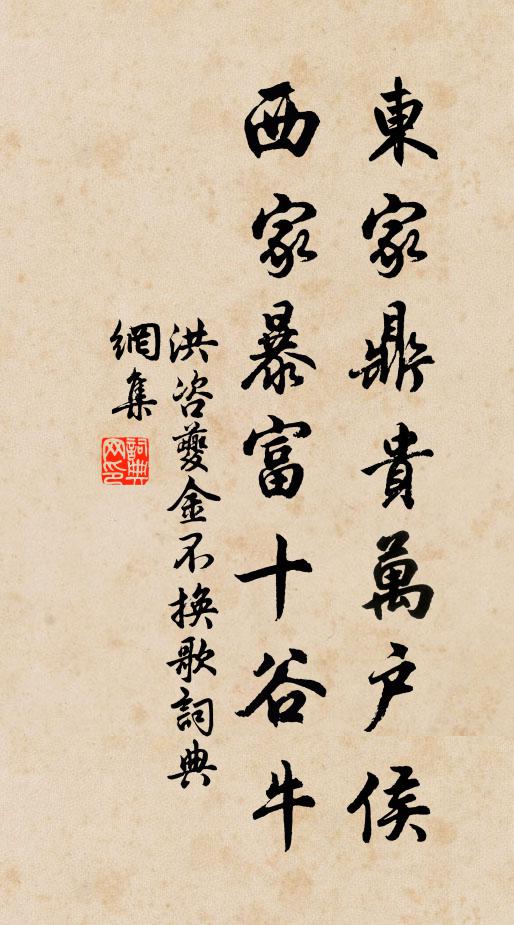 東家鼎貴萬户侯
西家暴富十谷牛
洪咨夔金不换歌詞典
網集
詞典
网印